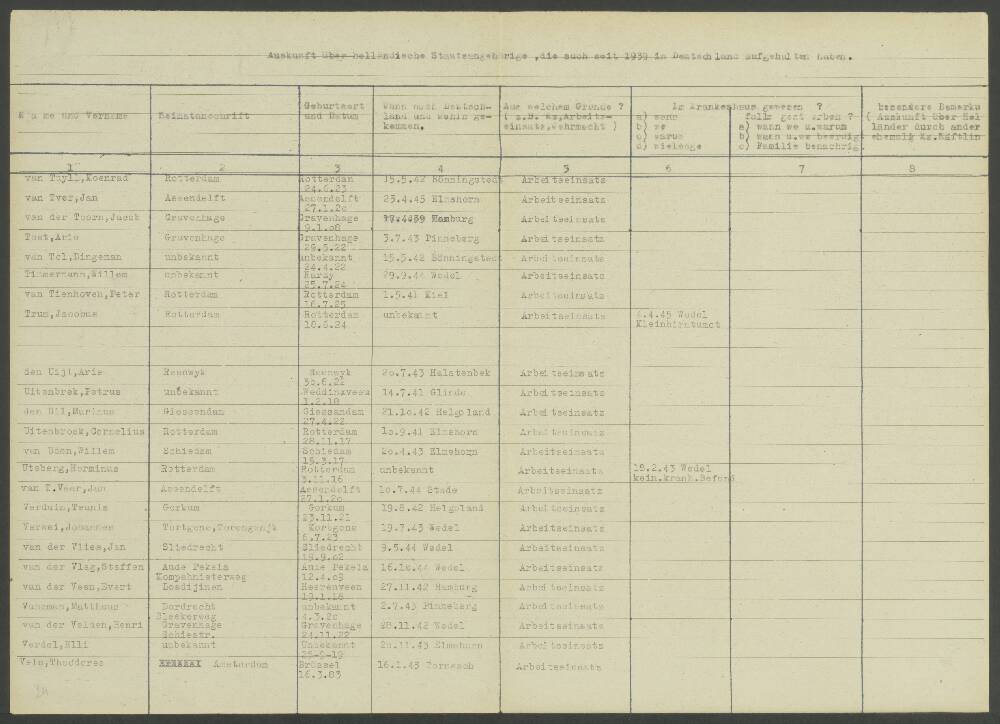 Auskunft über holländische Staatsangehörige ,die such seit 1939 in Deutschland aufgehalten haben.
Name und Vorname
Heimatanschrift
Geburtsort
und Datum
Wann nach Deutsch-
land und wohin ge-
kommen.
Aus welchem Grunde ?
( z.B. Kz,Arbeits-
einsatz,Wehrmacht )
Im Krankenhaus gewesen ?
a) wann
b) wo
c) warum
d) wielange
falls gestorben ?
a) wann wo u.warum
b) wann u.wo beerdig
c) Familie benachrig.
besondere Bemerku
( Auskunft über Hol
länder durch ander
ehemalig Kz.Häftlin
1 2 3 4 5 6 7 8
van Tuyll,Koenrad Rotterdam Rotterdam 15.5.42 Bönningstedt Arbeitseinsatz
24.6.23
van Tver,Jan Assendelft Assendelft 23.4.45 Elmshorn Arbeitseinsatz
27.1.20
van der Toorn,Jacob Gravenhage Gravenhage 17.4.39 Hamburg Arbeitseinsatz
9.1.08
Toet,Arie Gravenhage Gravenhage 3.7.43 Pinneberg Arbeitseinsatz
29.5.22
van Tol,Dingeman unbekannt unbekannt 15.5.42 Bönningstedt Arbeitseinsatz
24.4.22
Timmermann,Willem unbekannt 29.9.44 Wedel Arbeitseinsatz
25.7.24
van Tienhoven,Peter Rotterdam Rotterdam 1.5.41 Kiel Arbeitseinsatz
16.7.25
Trum,Jacobus Rotterdam Rotterdam unbekannt Arbeitseinsatz 4.4.45 Wedel
18.6.24 Kleinhirntumot
den Uijl,Arie Reewyk Reewyk 20.7.43 Halstenbek Arbeitseinsatz
30.6.21
Uitenbrek,Petrus unbekannt Weddinxveen 14.7.41 Glinde Arbeitseinsatz
1.2.18
den Uil,Marinus Giessendam Giessendam 21.10.42 Helgoland Arbeitseinsatz
27.4.22
Uitenbroek,Cornelius Rotterdam Rotterdam 10.9.41 Elmshorn Arbeitseinsatz
28.11.17
van Uden,Willem Schiedam Schiedam 20.4.43 Elmshorn Arbeitseinsatz
15.3.17
Uteberg,Herminus Rotterdam Rotterdam unbekannt Arbeitseinsatz 18.2.43 Wedel
3.11.16 kein.krank.Befund
van T.Veer,Jan Assendelft Assendelft 10.7.44 Stade Arbeitseinsatz
27.1.20
Verduin,Teunis Gorkum Gorkum 19.8.42 Helgoland Arbeitseinsatz
23.11.21
Verwei,Johannes Kortgene 19.7.43 Wedel Arbeitseinsatz
6.7.23
van der Vlies,Jan Sliedrecht Sliedrecht 9.5.44 Wedel Arbeitseinsatz
19.9.02
van der Vlag,Steffen Aude Pekela Aude Pekela 16.10.44 Wedel Arbeitseinsatz
Kompahnisterweg 12.4.09
van der Veen,Evert Losdijinen Heerenveen 27.11.42 Hamburg Arbeitseinsatz
19.1.18
Mattheus Dordrecht unbekannt 2.7.43 Pinneberg Arbeitseinsatz
Bleekerweg 4.3.20
van der Velden,Henri Gravenhage Gravenhage 28.11.42 Wedel Arbeitseinsatz
Schiestr. 24.11.22
Verdol,Elli unbekannt Unbekannt 20.11.43 Elmshorn Arbeitseinsatz
25-9-19
Vels,Theodores Amsterdam Brüssel 16.1.43 Tornesch Arbeitseinsatz
16.3.83